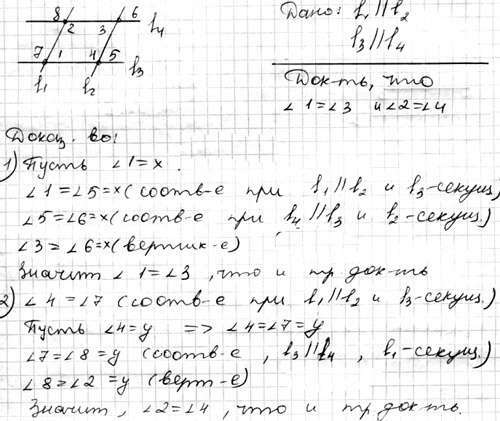 8 2 3 6 l₄
7 1 4 5 l₃
l₁ l₂
Дано: l₁ || l₂
l₃ || l₄
Док-ть, что
∠1=∠3 и ∠2=∠4
Доказ. во:
1) Пусть ∠1=x.
∠1=∠5=x (соотв-е при l₁ || l₂ и l₃-секущ.)
∠5=∠6=x (соотв-е при l₄ || l₃ и l₂-секущ.)
∠3=∠6=x (вертик-е)
Значит ∠1=∠3, что и тр док-ть
2) ∠4=∠7 (соотв-е при l₁ || l₂ и l₃-секущ.)
Пусть ∠4=y => ∠4=∠7=y
∠7=∠8=y (соотв-е, l₃ || l₄, l₁-секущ.)
∠8=∠2=y (верт-е)
Значит, ∠2=∠4, что и тр док-ть.